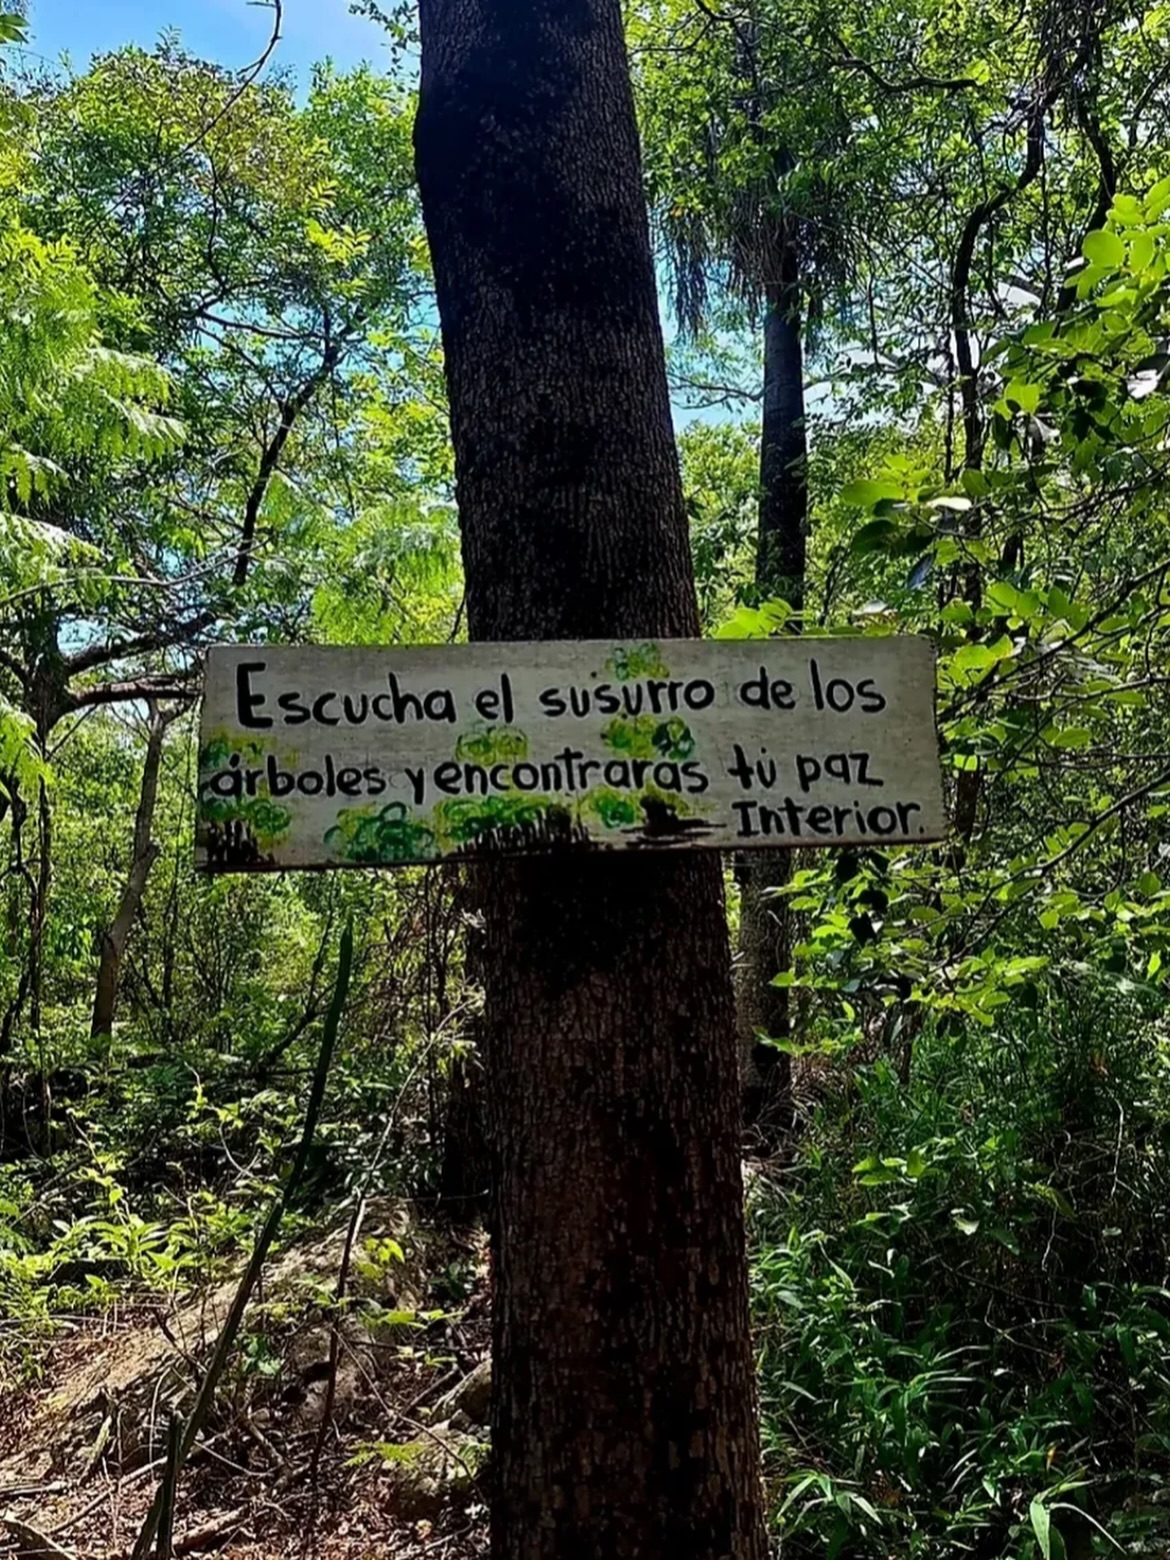 Escucha el susurro de los
árboles y encontraras tú paz
Interior.